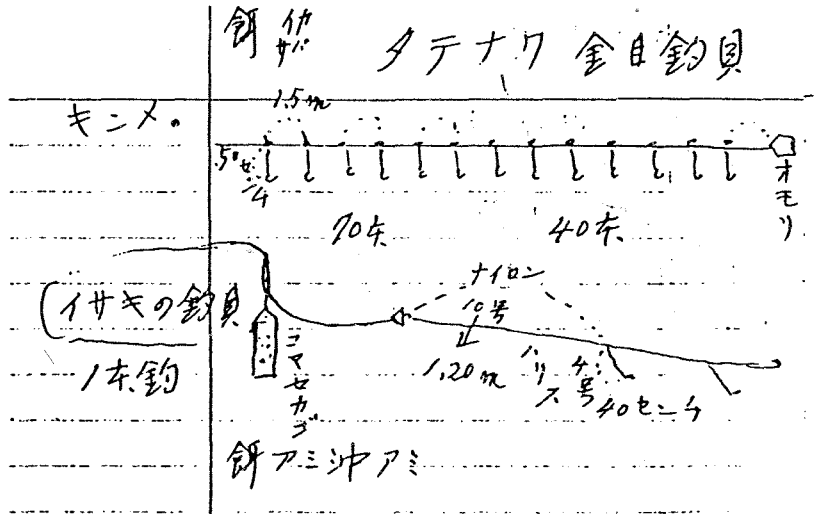 餌 イカ サバ
タテナワ 金目釣具
キンメ。
1.5m
50センチ
オモリ
70本 40本
(イサキの釣具
1本釣
コマセカゴ
ナイロン
10号
1.20m
ハリス 4号
40センチ
餌アミ沖アミ